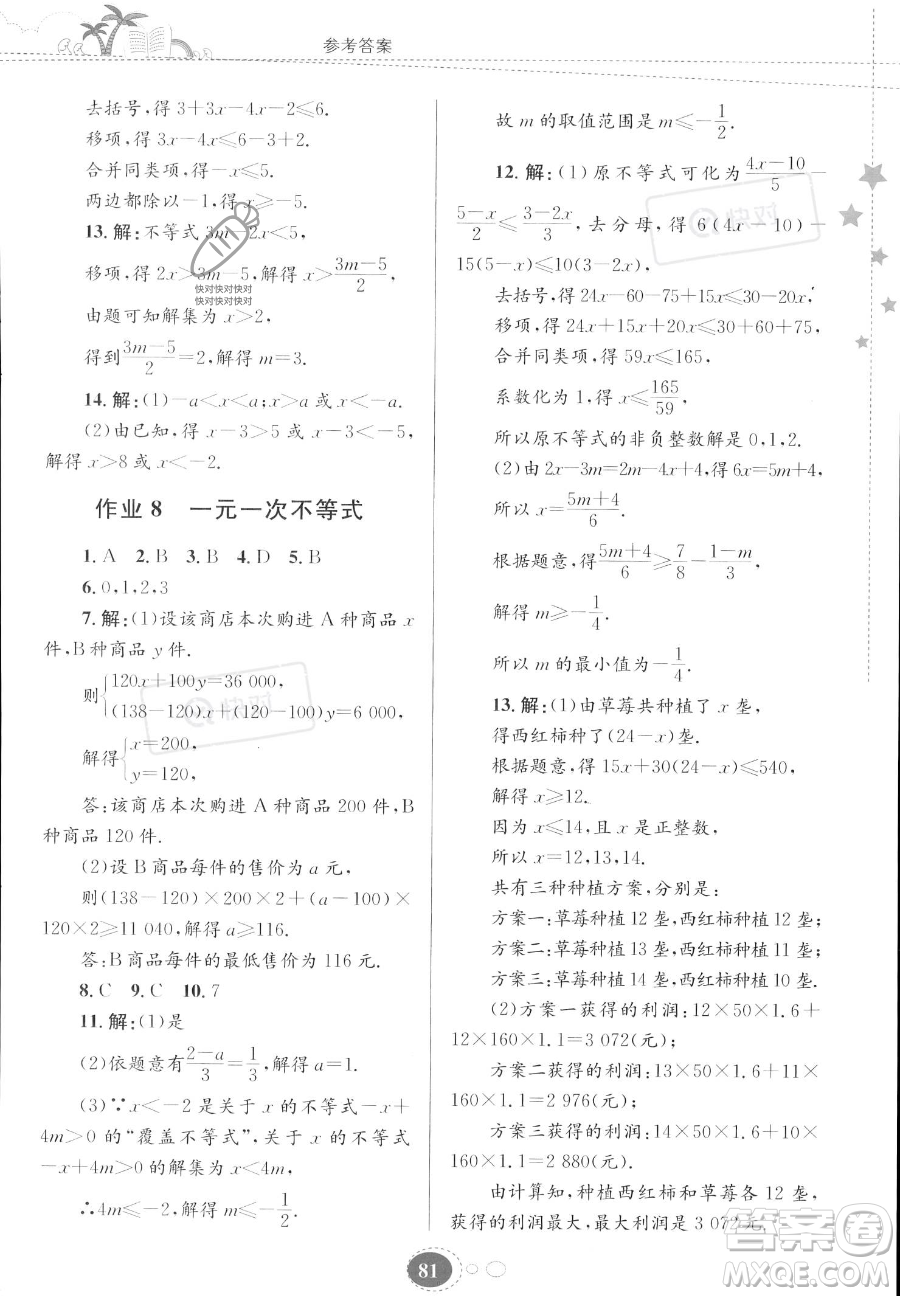 参考答案
去括号,得 3+3x-4x-2≤6.
移项,得 3x-4x≤6-3+2.
合并同类项,得-x≤5.
两边都除以-1,得 x≥-5.
13.解:不等式 3m-2x<5,
移项,得 2x>3m-5,解得 x>\frac{3m-5}{2},
快对快对快对
快对快对快对
由题可知解集为 x>2,
得到\frac{3m-5}{2}=2,解得 m=3.
14.解:(1)-a<x<a;x>a 或 x<-a.
(2)由已知,得 x-3>5 或 x-3<-5,
解得 x>8 或 x<-2.
作业 8 一元一次不等式
1. A 2. B 3. B 4. D 5. B
6. 0,1,2,3
7.解:(1)设该商店本次购进 A 种商品 x
件,B 种商品 y 件.
则{120x+100y=36 000,
(138-120)x+(120-100)y=6 000,
解得{x=200,
y=120,
答:该商店本次购进 A 种商品 200 件,B
种商品 120 件.
(2)设 B 商品每件的售价为 a 元,
则(138-120)×200×2+(a-100)×
120×2≥11 040,解得 a≥116.
答:B 商品每件的最低售价为 116 元.
8. C 9. C 10. 7
11.解:(1)是
(2)依题意有\frac{2-a}{3}=\frac{1}{3},解得 a=1.
(3)∵x<-2 是关于 x 的不等式-x+
4m>0 的“覆盖不等式”,关于 x 的不等式
-x+4m>0 的解集为 x<4m,
∴4m≤-2,解得 m≤-\frac{1}{2}.
故 m 的取值范围是 m≤-\frac{1}{2}.
12.解:(1)原不等式可化为\frac{4x-10}{5}-
\frac{5-x}{2}≤\frac{3-2x}{3},去分母,得 6(4x-10)-
15(5-x)≤10(3-2x),
去括号,得 24x-60-75+15x≤30-20x,
移项,得 24x+15x+20x≤30+60+75,
合并同类项,得 59x≤165,
系数化为 1,得 x≤\frac{165}{59},
所以原不等式的非负整数解是 0,1,2.
(2)由 2(x-2m)=m-4x+4,得 6x=5m+4,
所以 x=\frac{5m+4}{6}.
根据题意,得\frac{5m+4}{6}≥\frac{7}{8}-\frac{1-m}{3},
解得 m≥-\frac{1}{4}.
所以 m 的最小值为-\frac{1}{4}.
13.解:(1)由草莓共种植了 x 垄,
得西红柿种了(24-x)垄.
根据题意,得 15x+30(24-x)≤540,
解得 x≥12.
因为 x≤14,且 x 是正整数,
所以 x=12,13,14.
共有三种种植方案,分别是:
方案一:草莓种植 12 垄,西红柿种植 12 垄;
方案二:草莓种植 13 垄,西红柿种植 11 垄;
方案三:草莓种植 14 垄,西红柿种植 10 垄.
(2)方案一获得的利润:12×50×1.6+
12×160×1.1=3 072(元);
方案二获得的利润:13×50×1.6+11×
160×1.1=2 976(元);
方案三获得的利润:14×50×1.6+10×
160×1.1=2 880(元).
由计算知,种植西红柿和草莓各 12 垄,
获得的利润最大,最大利润是 3 072 元.
81
答案卷
MXQE.COM